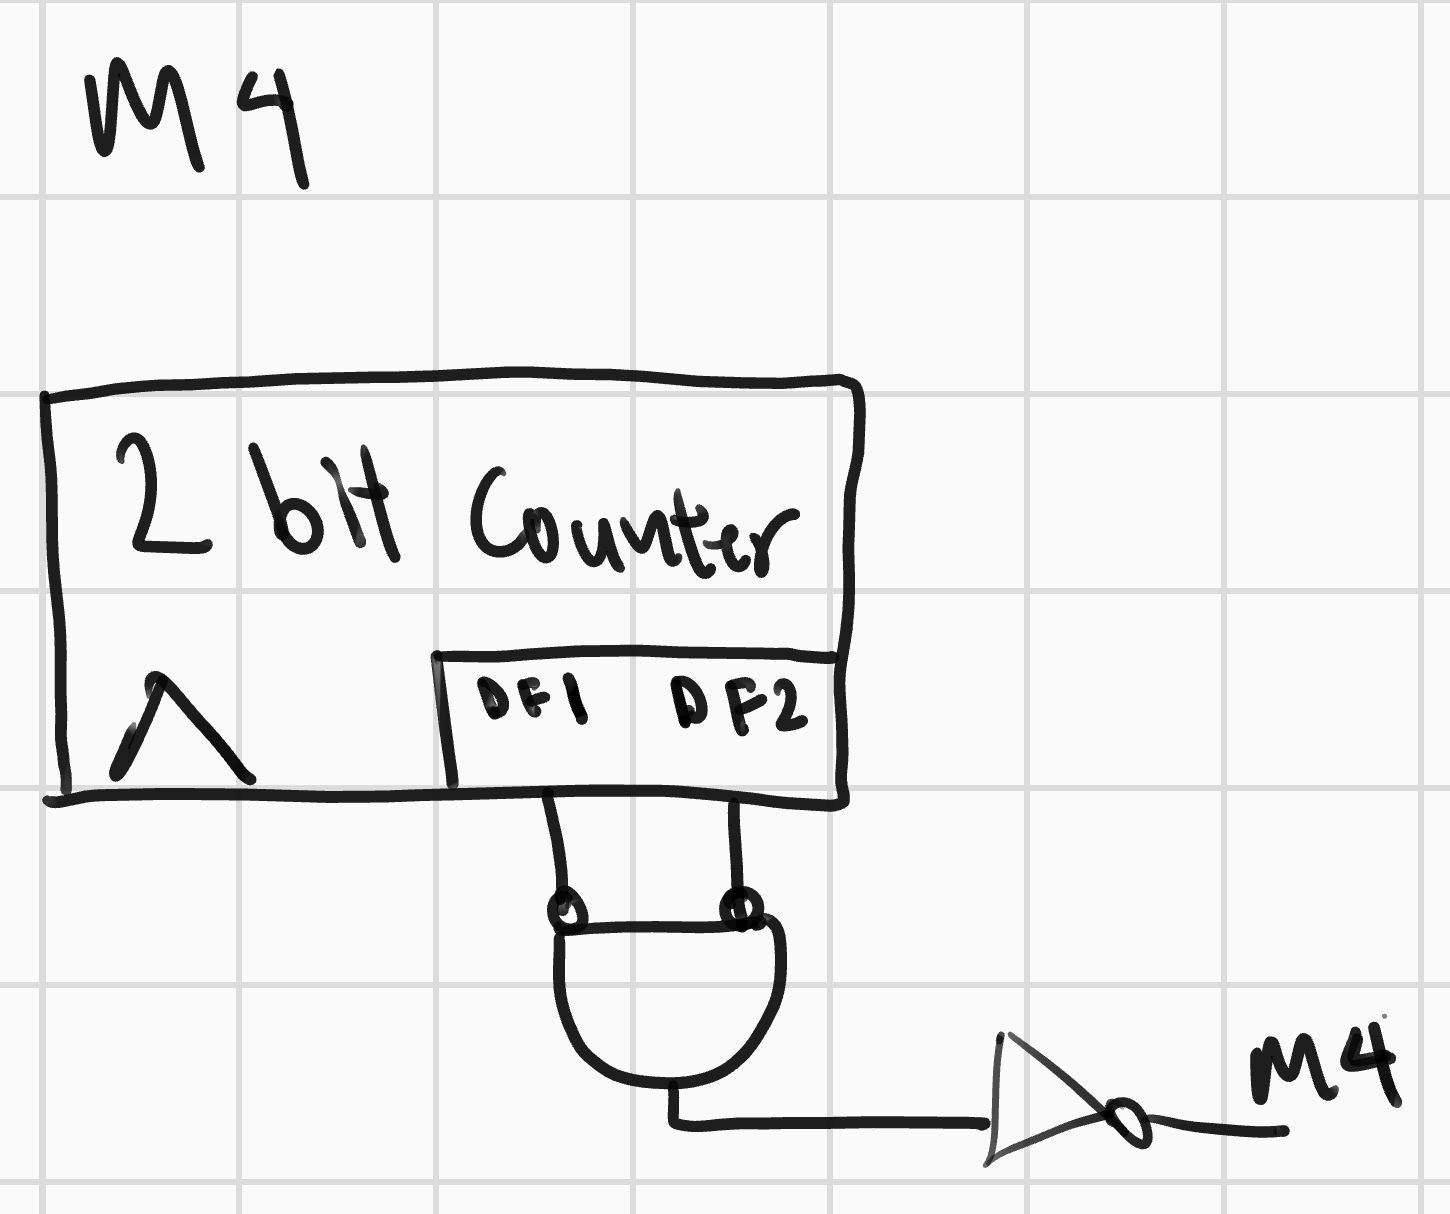 M4
2 bit Counter
DF1 DF2
M4